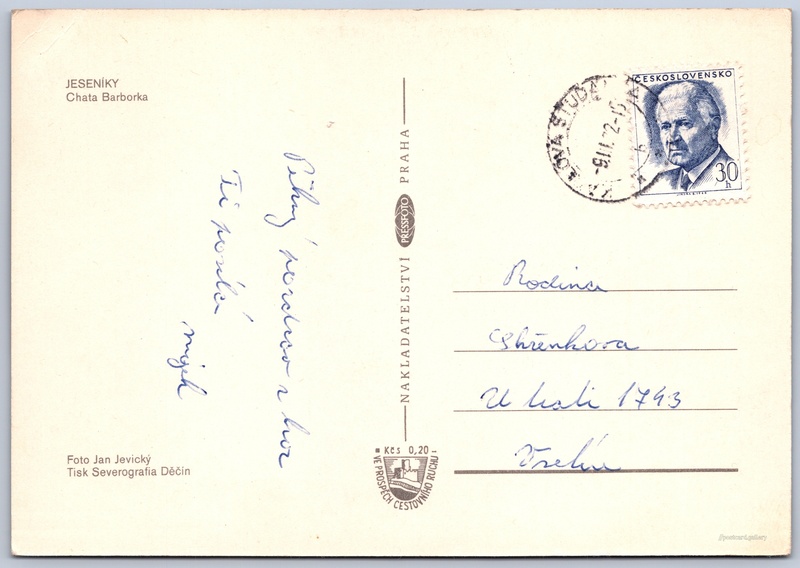 JESENÍKY
Chata Barborka
Pěkný pozdrav z hor
Ti posílá
Foto Jan Jevický
Tisk Severografia Děčín
NAKLADATELSTVÍ PRESSFOTO PRAHA
Kčs 0,20
VE PROSPĚCH CESTOVNÍHO RUCHU
ČESKOSLOVENSKO
30
h
-9.II.72-15
Rodina
1743
Vsetín
//postcard.gallery